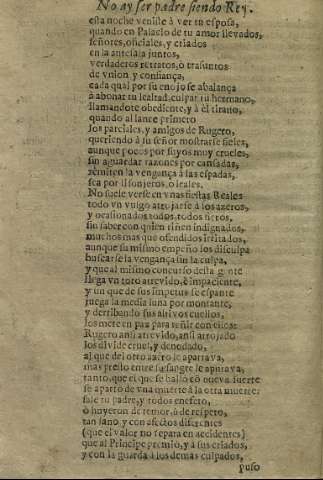 No ay ser padre siendo Rey.
esta noche veniste à ver tu esposa,
quando en Palacio de tu amor llevados,
señores, oficiales, y criados
en la antesala juntos,
verdaderos retratos, o trasuntos
de vnion, y confiança,
cada qual por su enojo se abalança
à abonar tu lealtad, culpar tu hermano,
llamandote obediente, y à èl tirano,
quando al lance primero
los parciales, y amigos de Rugero,
queriendo à su señor mostrarse fieles,
aunque pocos por suyos muy crueles,
sin aguardar razones por cansadas,
remiten la vengança à las espadas,
sea por lisonjeros, o leales.
No suele verse en vnas fiestas Reales
todo vn vulgo arrojarse à los azeros,
y ocasionados todos, todos fieros,
sin saber con quien riñen indignados,
muchos mas que ofendidos irritados,
aunque su mismo empeño los disculpa
buscarse la vengança sin la culpa,
y que al mismo concurso desta gente
llega vn toro atrevido, è impaciente,
y vn que de sus impetus se espante
juega la media luna por montante,
y derribando sus altivos cuellos,
los mete en paz para reñir con ellos:
Rugero ansi atrevido, ansi arrojado
los divide cruel, y denodado,
al que del otro azero le apartava,
mas presto entre su sangre le apurava,
tanto, que el que se hallò cõ nueva suerte
se apartò de vna muerte à la otra muerte:
sale tu padre, y todos en efeto,
ò huyeron de temor, ù de respeto,
tan sano, y con afectos diferentes
(que el valor no repara en accidentes)
que al Principe premiò, y à sus criados,
y con la guarda à los demas culpados,
puso